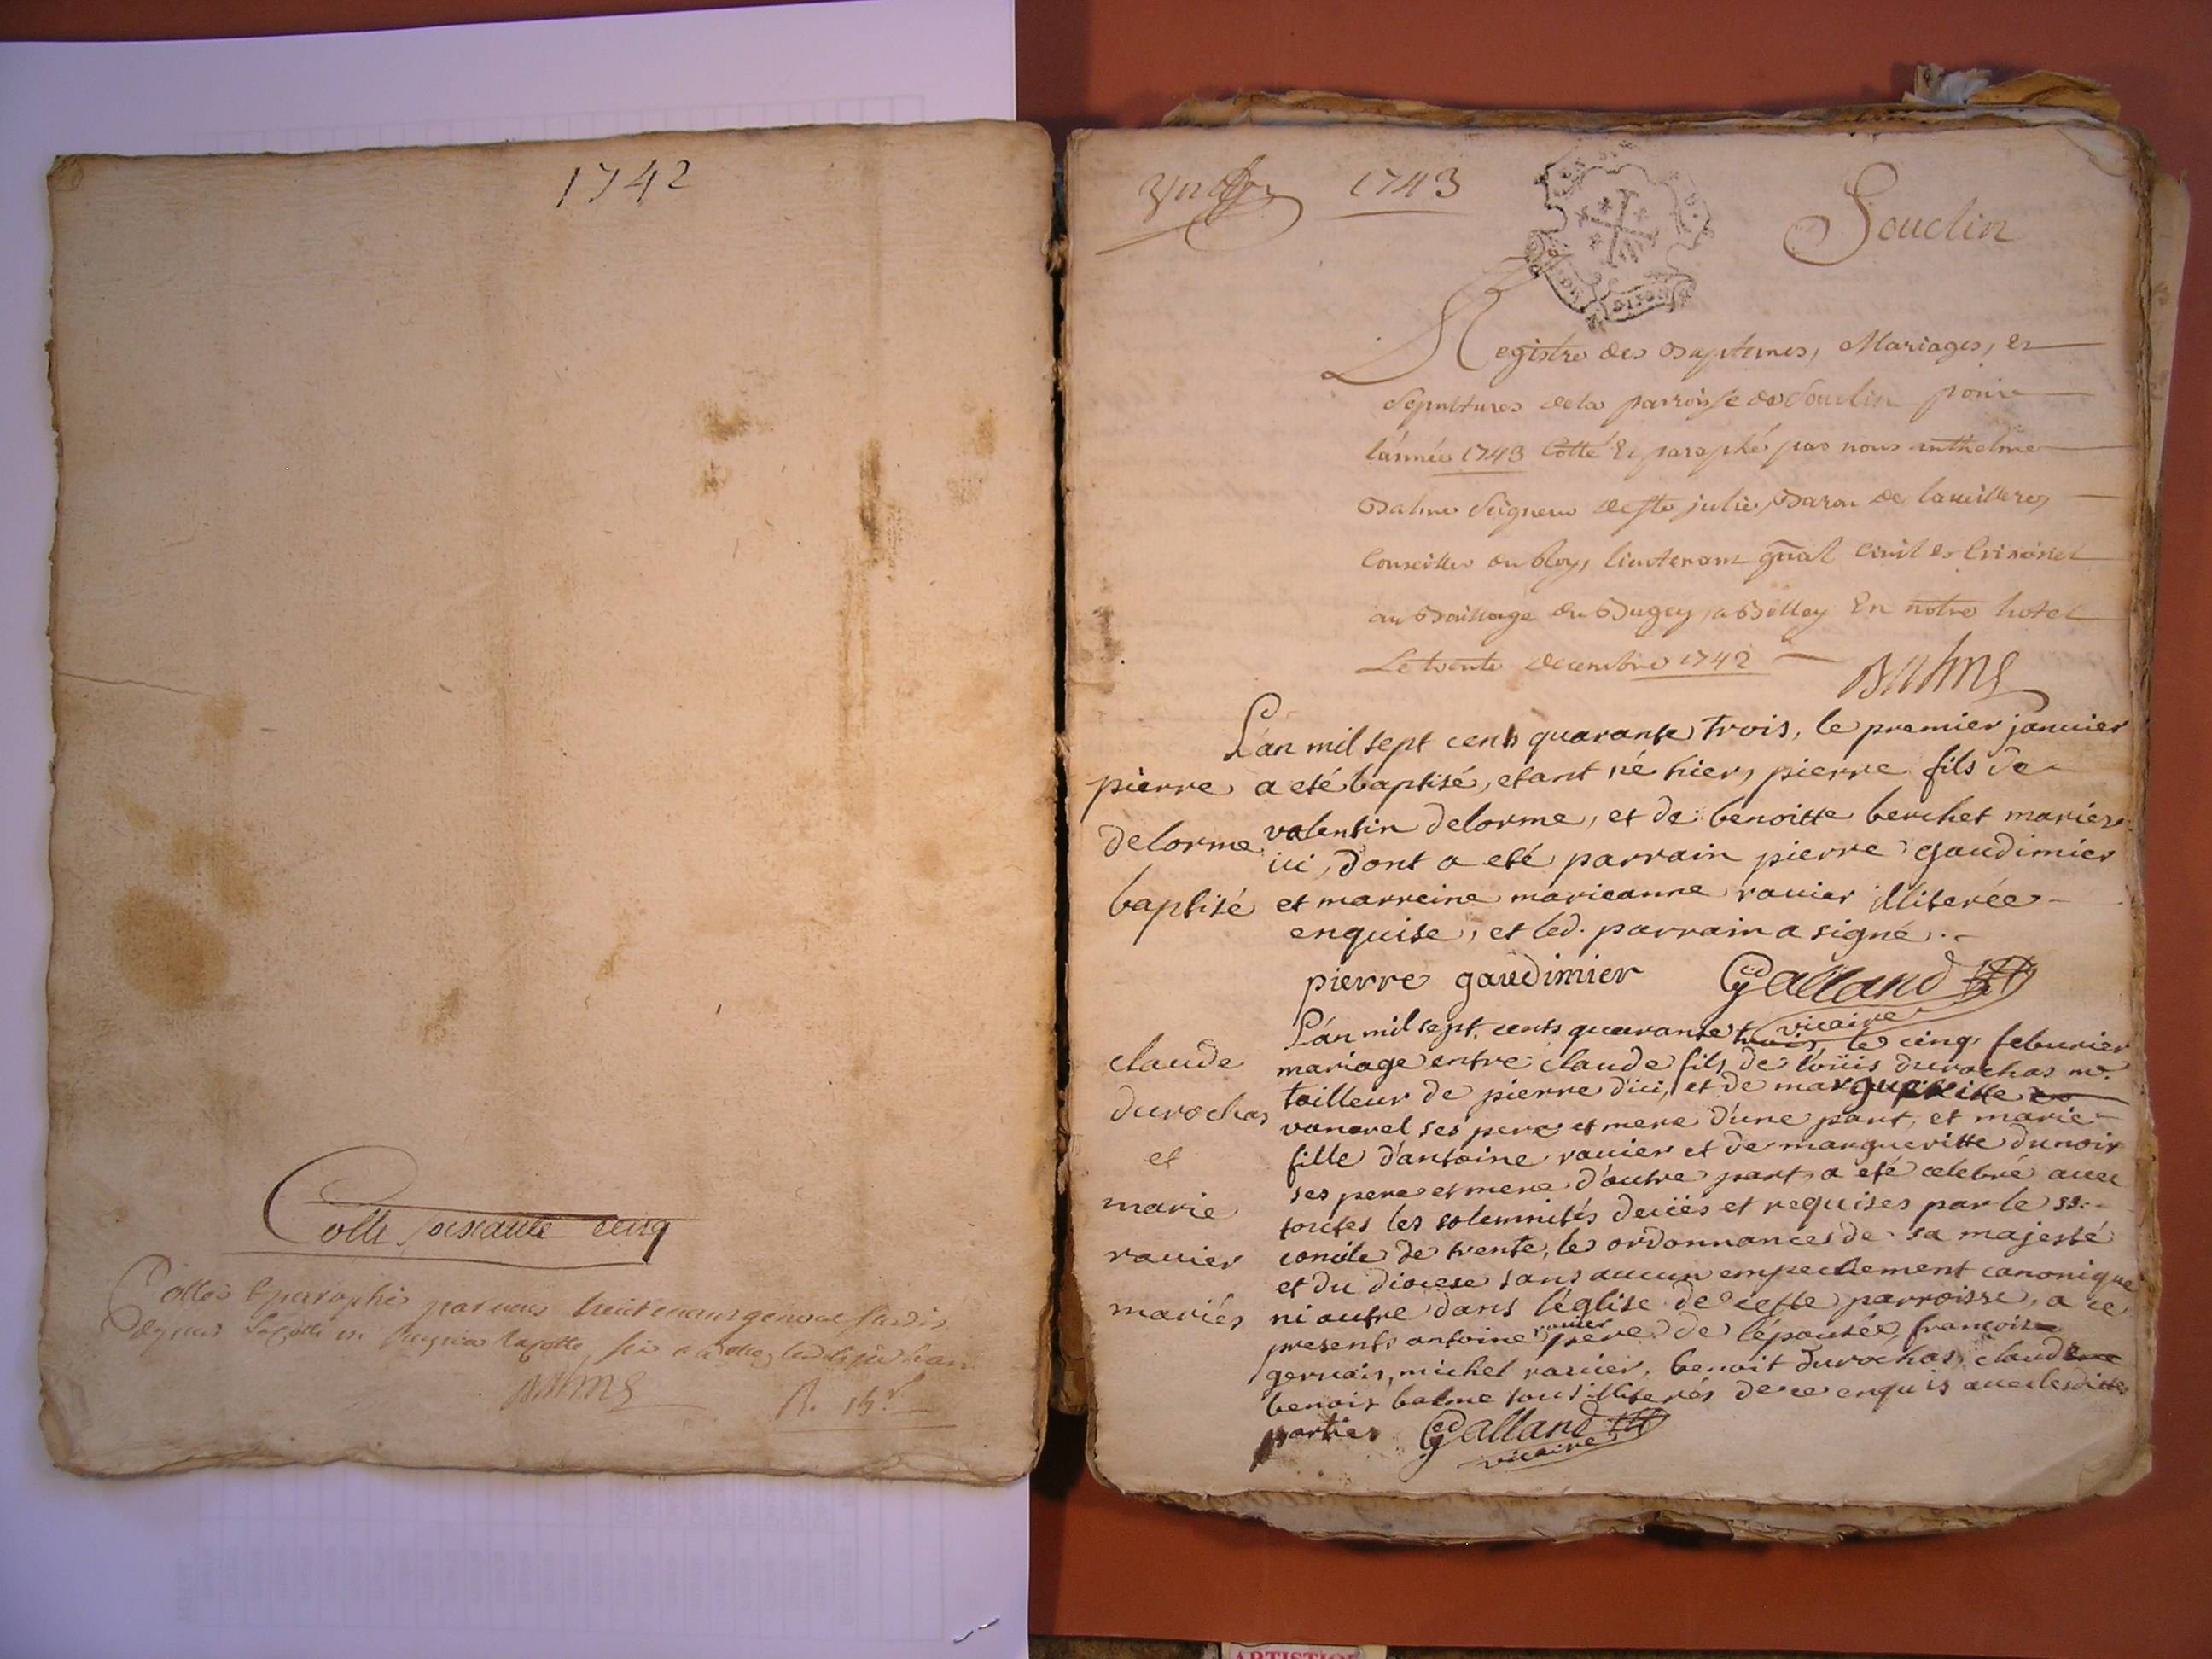 1742
Cotte soixante cinq
Cottés & paraphé par nous lieutenant general
Balme
1743
Souclin
Registre des Baptemes, Mariages, et
Sepultures de la parroisse de Souclin pour
l'année 1743 Cotté & paraphé par nous anthelme
Balme Seigneur de Ste julie, Baron de
Conseiller du Roy, lieutenant gñal Civil et Criminel
au Baillage du Bugey, a Belley En notre hotel
Le trente decembre 1742
Balme
L'an mil sept cents quarante trois, le premier januier
pierre a eté baptisé, etant né hier, pierre fils de
delorme valentin delorme, et de benoitte berchet mariés
ici, dont a eté parrain pierre gaudimier
baptisé et marreine marieanne rauier illiterée
enquise, et led. parrain a signé.
pierre gaudimier Galland
vicaire
L'an mil sept cents quarante trois le cinq feburier
claude mariage entre claude fils de loüis durochas me.
tailleur de pierre d'ici, et de margueritte
durochas vanarel ses pere et mere d'une part, et marie
et fille d'antoine rauier et de margueritte dunoir
ses pere et mere d'autre part, a eté celebré auec
marie toutes les solemnités deües et requises par le ss.
rauier concile de trente, les ordonnances de sa majesté
et du diocese sans aucun empechement canonique
mariés ni autre dans l'église de cette parroisse, a ce
presents antoine rauier pere de l'épousée, françois
geruais, michel rauier, benoit durochas, claude
benoit balme tous illiterés de ce enquis auec lesdittes
parties Galland
vicaire